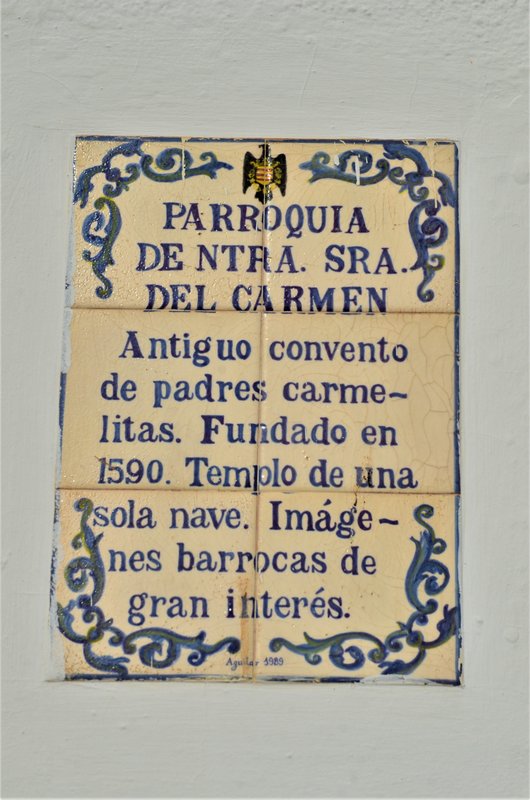 PARROQUIA
DE NTRA. SRA.
DEL CARMEN
Antiguo convento
de padres carme~
litas. Fundado en
1590. Templo de una
sola nave. Imáge~
nes barrocas de
gran interés.
Aguilar 1989